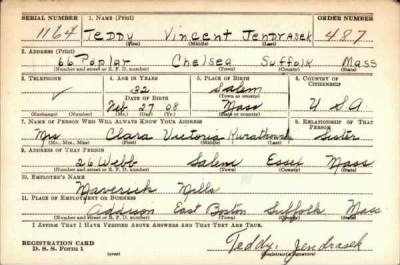 SERIAL NUMBER 1. NAME (Print) ORDER NUMBER
1164 TEDDY Vincent JENDRASEK 487
(First) (Middle) (Last)
2. ADDRESS (Print)
66 Poplar Chelsea Suffolk Mass
(Number and street or R. F. D. number) (Town) (County) (State)
3. TELEPHONE 4. AGE IN YEARS 5. PLACE OF BIRTH 6. COUNTRY OF CITIZENSHIP
32 Salem
DATE OF BIRTH (Town or county)
Feb 27 08 Mass U S A
(Exchange) (Number) (Mo.) (Day) (Yr.) (State or country)
7. NAME OF PERSON WHO WILL ALWAYS KNOW YOUR ADDRESS 8. RELATIONSHIP OF THAT PERSON
Mrs Clara Victoria Sister
(Mr., Mrs., Miss) (First) (Middle) (Last)
9. ADDRESS OF THAT PERSON
26 Webb Salem Essex Mass
(Number and street or R. F. D. number) (Town) (County) (State)
10. EMPLOYER'S NAME
Maverick Mills
11. PLACE OF EMPLOYMENT OR BUSINESS
Addison East Boston Suffolk Mass
(Number and street or R. F. D. number) (Town) (County) (State)
I AFFIRM THAT I HAVE VERIFIED ABOVE ANSWERS AND THAT THEY ARE TRUE.
REGISTRATION CARD
D. S. S. Form 1 (over) Teddy Jendrasek
(Registrant's signature)